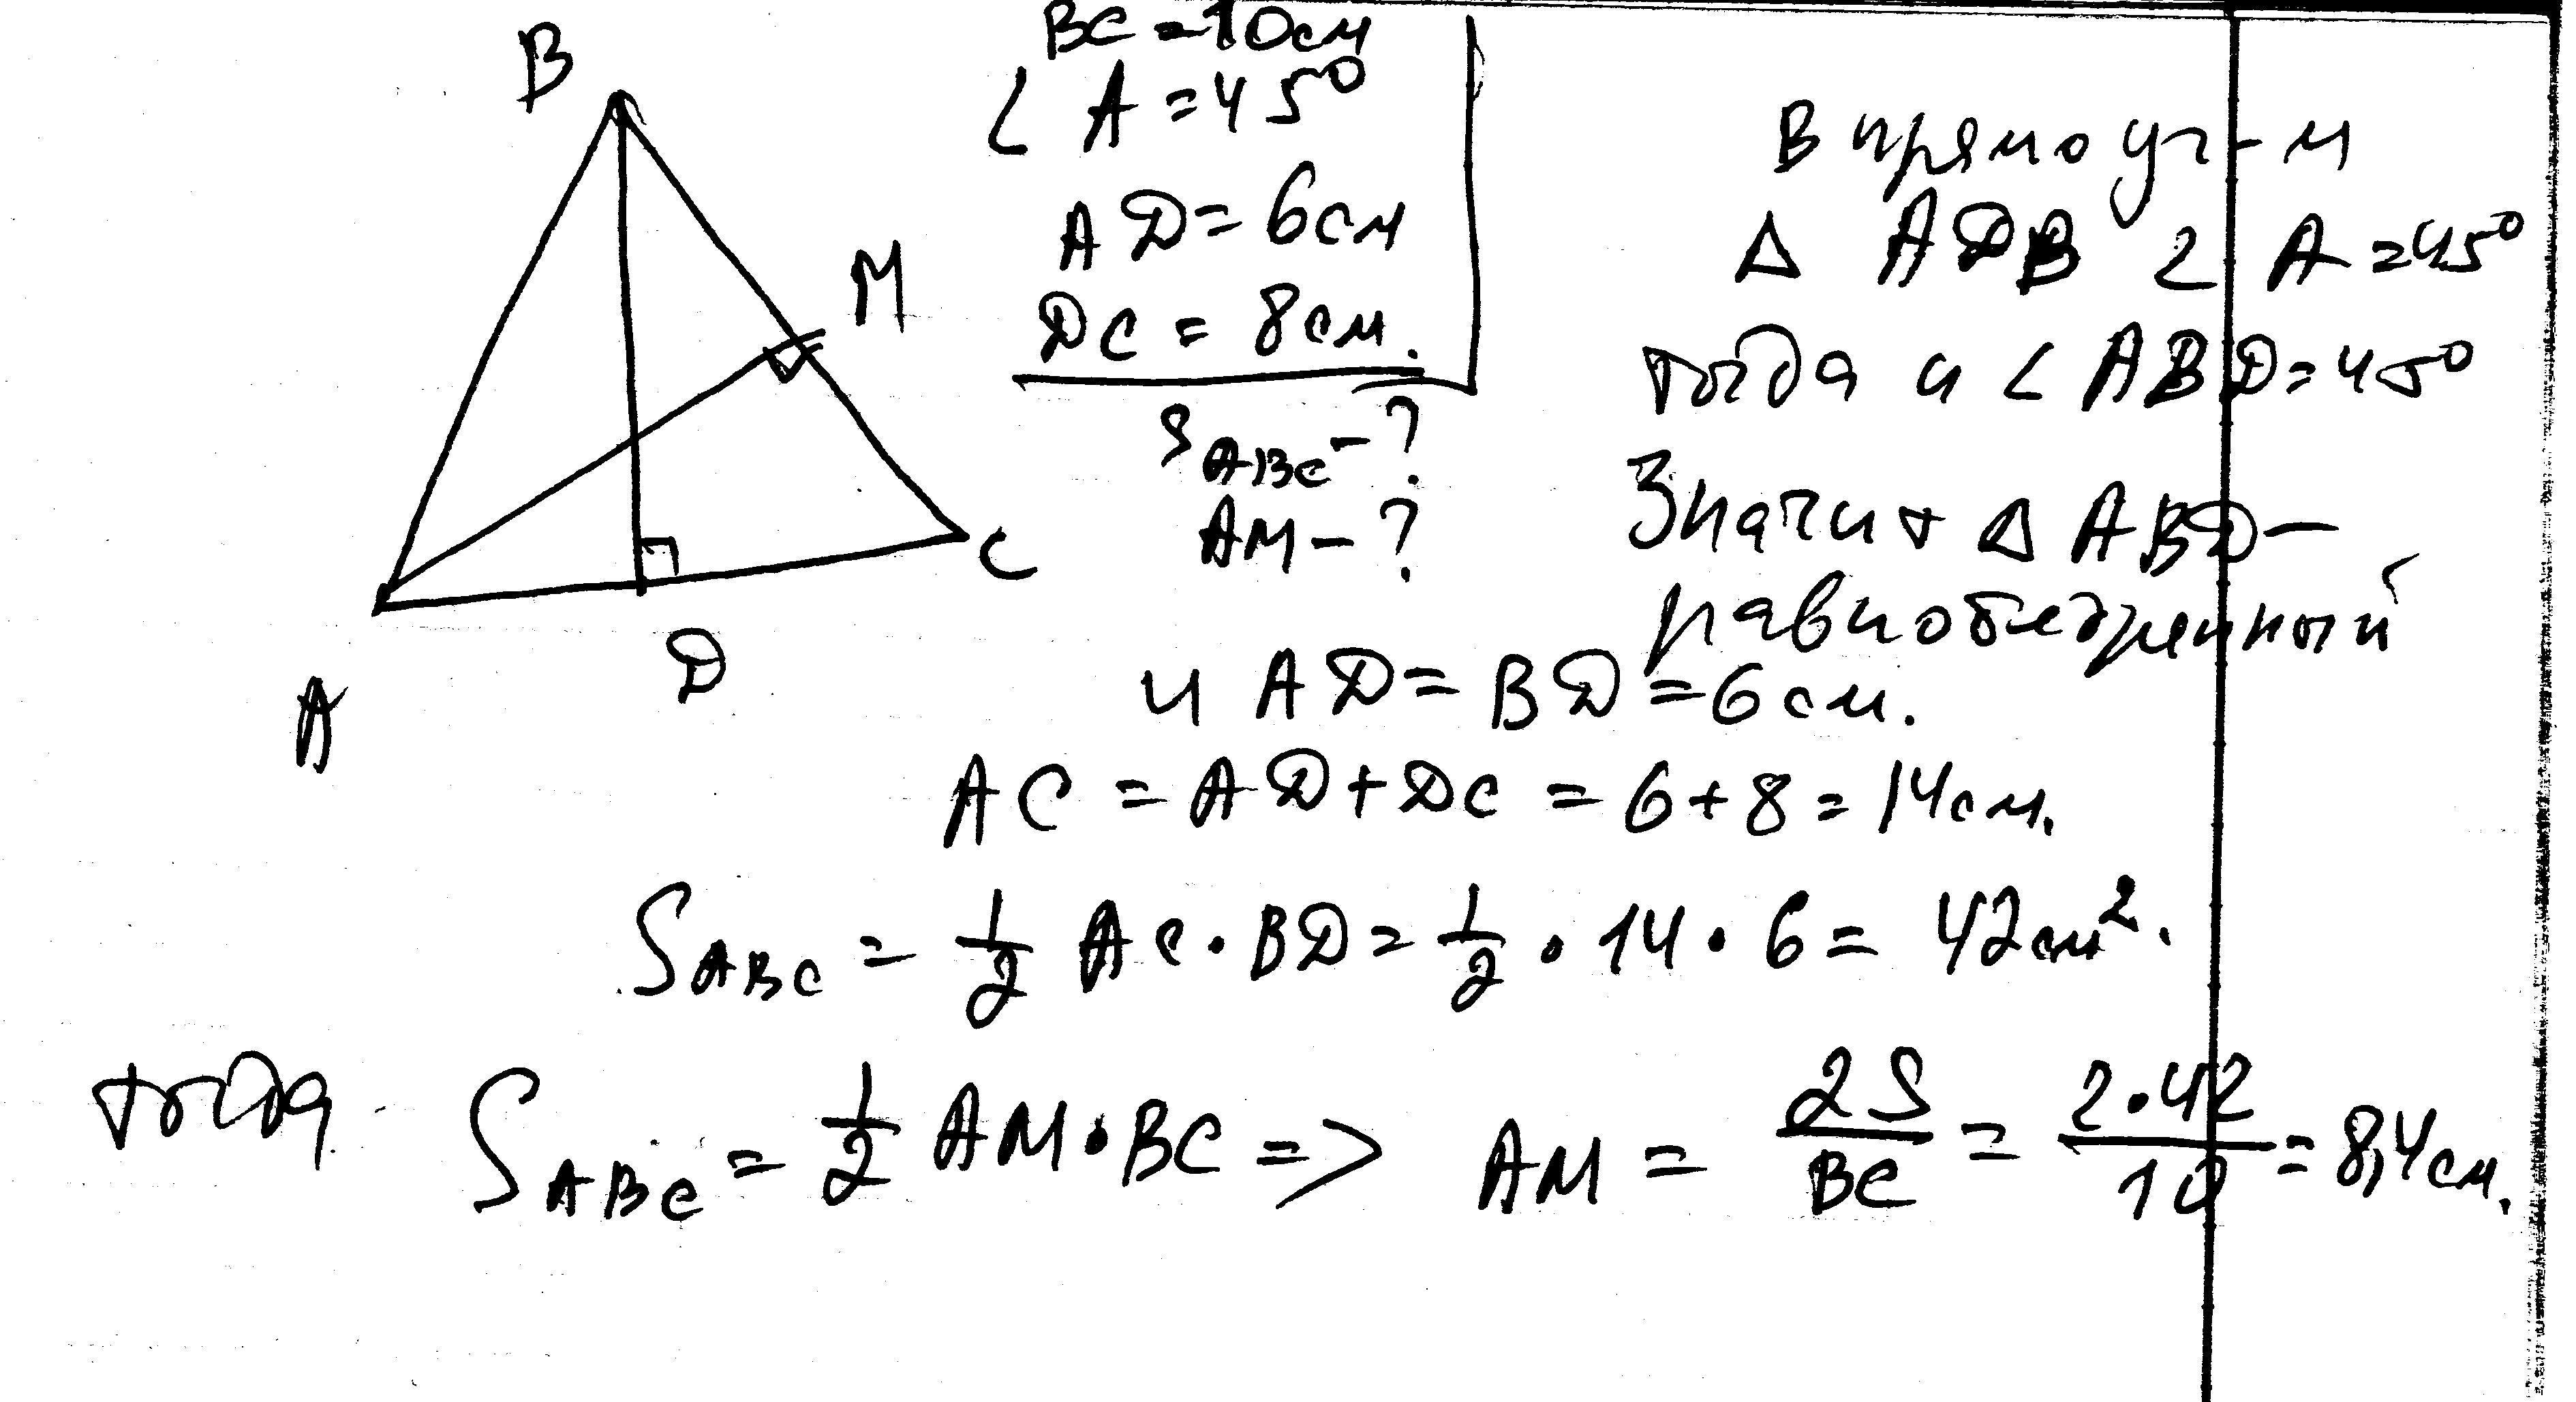 B
M
C
D
A
BC = 10см
∠ A = 45°
AD = 6см
DC = 8см.
S ABC - ?
AM - ?
В прямоуг-м
Δ ADB ∠ A = 45°
тогда и ∠ ABD = 45°
Значит Δ ABD -
равнобедренный
и AD = BD = 6см.
AC = AD + DC = 6 + 8 = 14см.
S ABC = 1/2 AC · BD = 1/2 · 14 · 6 = 42см².
тогда S ABC = 1/2 AM · BC => AM = 2S/BC = 2·42/10 = 8,4см.